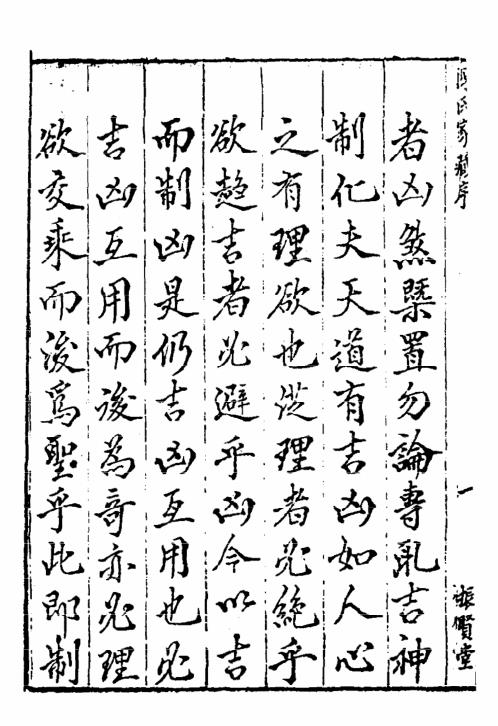 者凶煞槩置勿論專乱吉神
制化夫天道有吉凶如人心
之有理欲也從理者必絶乎
欲趋吉者必避乎凶今以吉
而制凶是仍吉凶互用也必
吉凶互用而後為奇亦必理
欲交乘而後爲聖乎此即制
氏家藏序
一
振賢堂